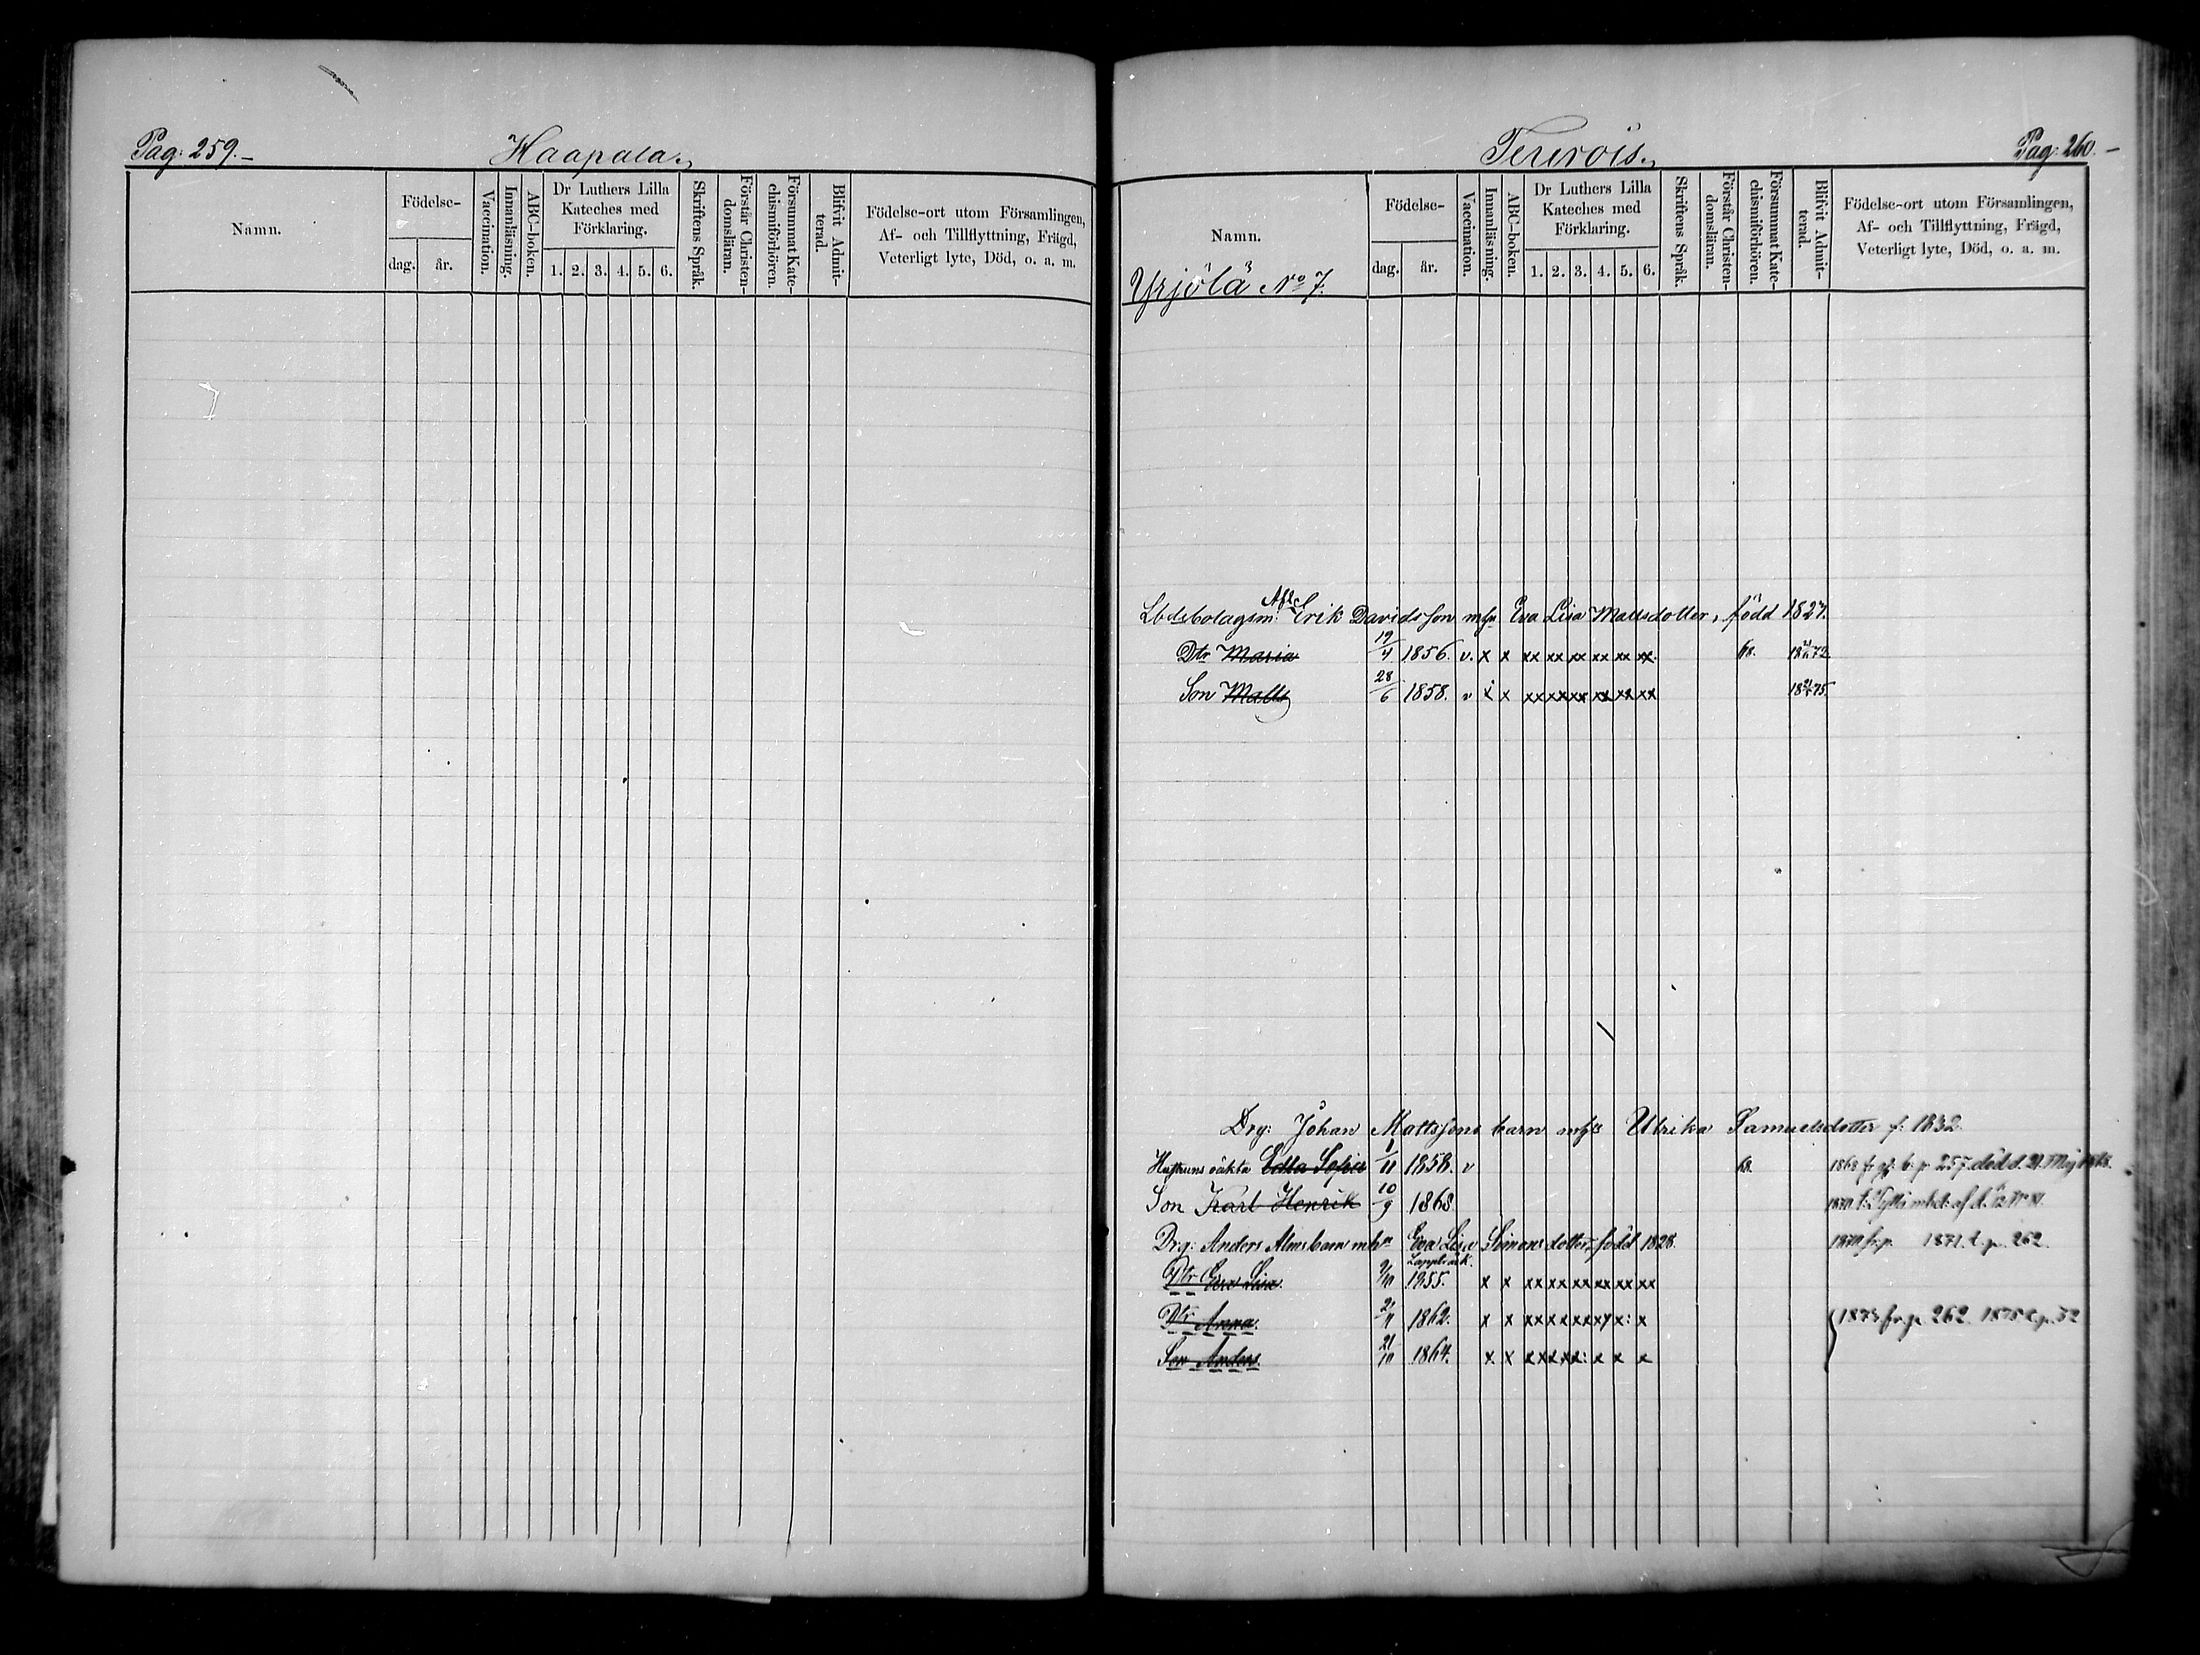 Pag: 259.
Haapala.
Namn.
Födelse-
dag.
år.
Vaccination.
Innanläsning.
ABC-boken.
Dr Luthers Lilla
Kateches med
Förklaring.
1. 2. 3. 4. 5. 6.
Skriftens Språk.
Förstår Christen-
domsläran.
Försummat Kate-
chismiförhören.
Blifvit Admit-
terad.
Födelse-ort utom Församlingen,
Af- och Tillflyttning, Frägd,
Veterligt lyte, Död, o. a. m.
Terervois.
Pag: 260.
Namn.
Födelse-
dag.
år.
Vaccination.
Innanläsning.
ABC-boken.
Dr Luthers Lilla
Kateches med
Förklaring.
1. 2. 3. 4. 5. 6.
Skriftens Språk.
Förstår Christen-
domsläran.
Försummat Kate-
chismiförhören.
Blifvit Admit-
terad.
Födelse-ort utom Församlingen,
Af- och Tillflyttning, Frägd,
Veterligt lyte, Död, o. a. m.
Yrjölä No 7.
Erik Davidsson Eva Lisa Mattsdotter, född 1827.
Dtr Maria 19/4 1856. v. x x xx xx xx xx xx xx. 68.
Son Matts 28/6 1858. v x x xx xx xx xx xx xx
Drg: Johan Mattssons barn Ulrika Samuelsdotter f: 1832
Hustruns oäkta Edla Sofia 1/11 1858. v 68. 257. död d. 21. Maj 1868.
Son Karl Henrik 10/9 1868
Drg: Anders Alms barn Eva Lisa Simonsdotter, född 1828. 1871. t. p. 262.
Lappträsk.
Dtr Eva Lisa. 9/10 1855. x x xx xx xx xx xx xx
Dtr Anna. 2/4 1862. x x
Son Anders. 21/10 1864. x x
1873 fr. p. 262. 1875 t. p. 52